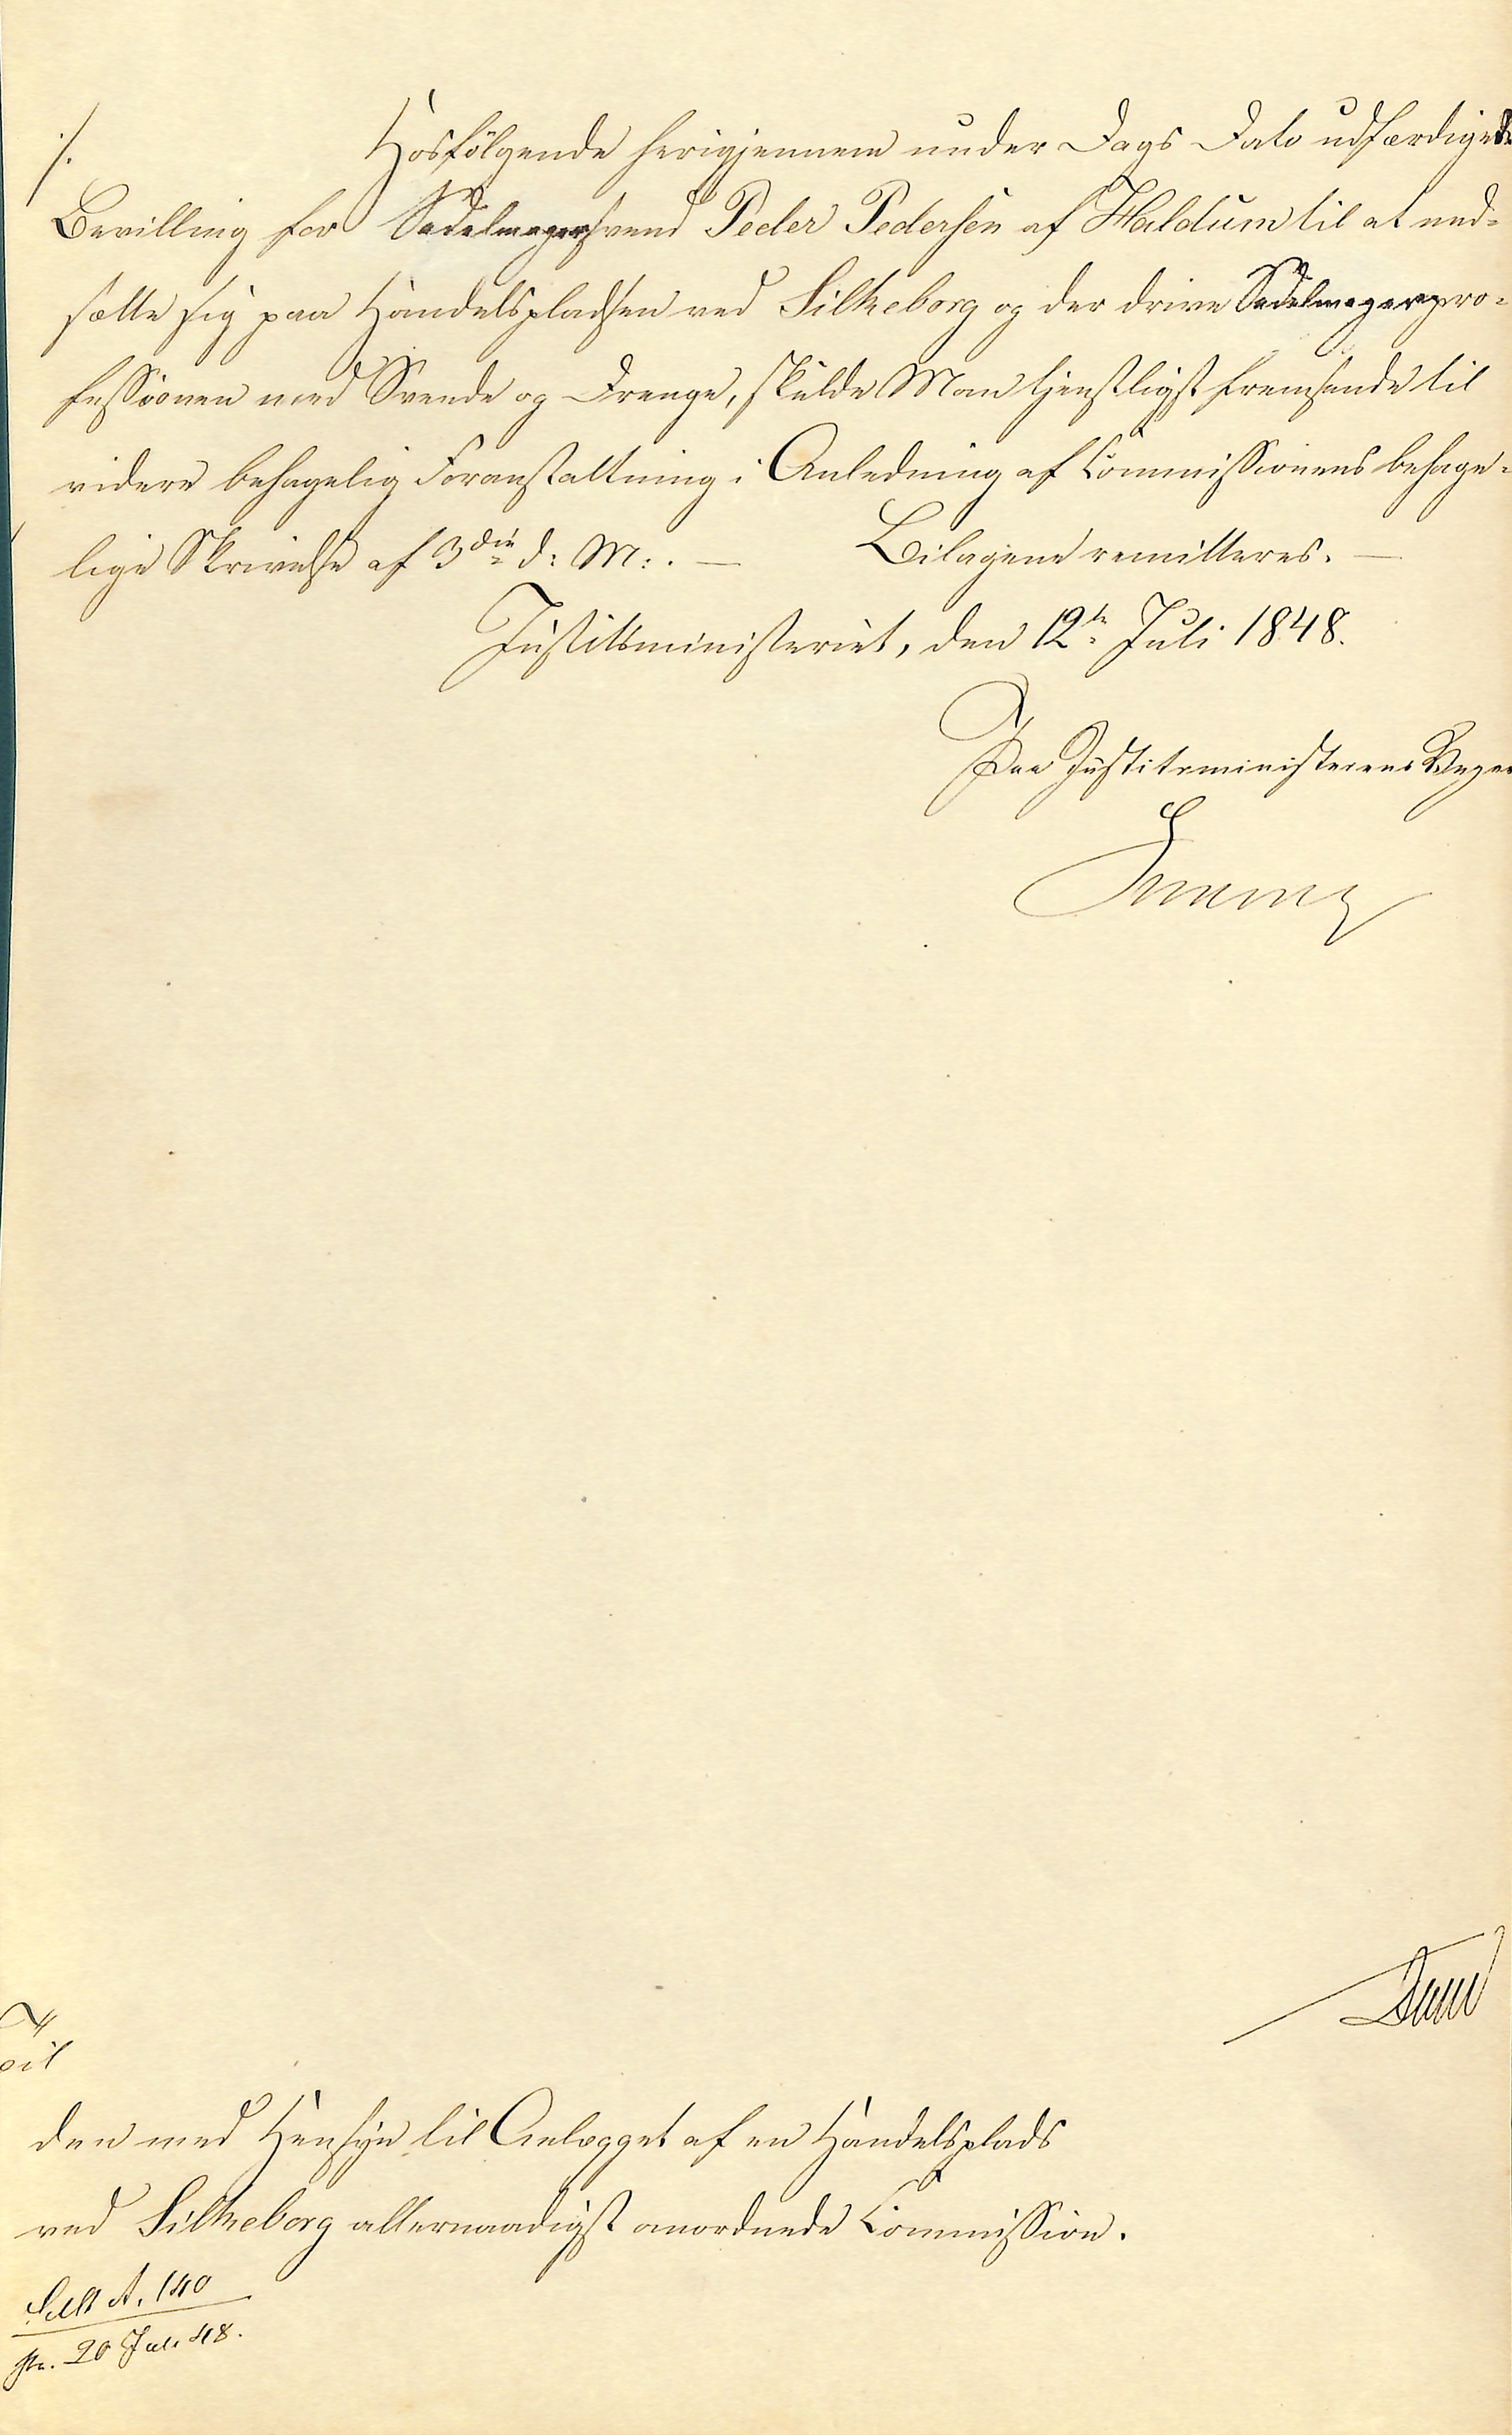 ./. Hosfölgende herigjennem under Dags Dato udfærdigede
Bevilling for Sadelmagersvend Peder Pedersen af Haldum til at ned=
sætte sig paa Handelspladsen ved Silkeborg og der drive Sadelmagerpro=
fessionen med Svende og Drenge, skulde Man tjenstligst fremsende til
videre behagelig Foranstaltning i Anledning af Commissionens behage=
lige Skrivelse af 3die d: M:. — Bilagene remitteres. —
Justitsministeriet, den 12te Juli 1848.
Paa Justitsministerens Vegne
Til
den med Hensyn til Anlægget af en Handelsplads
ved Silkeborg allernaadigst anordnede Commission.
A. 140
20 Juli 48.